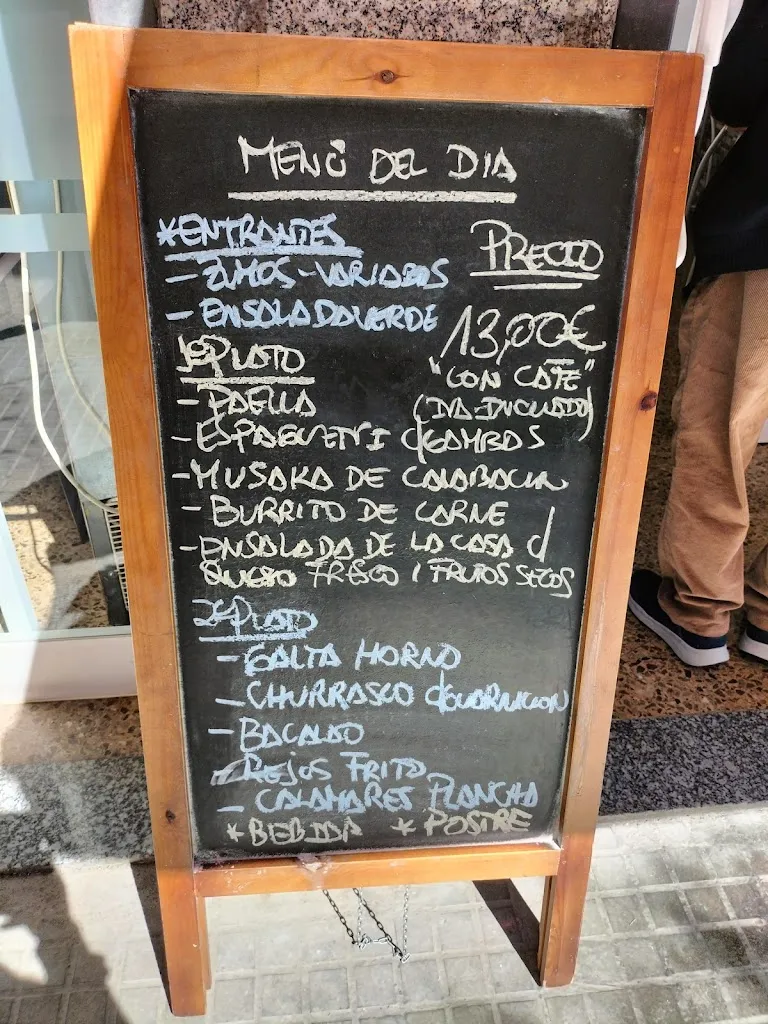 MENÚ DEL DIA
*ENTRANTES
- ZUMOS-VARIADOS
- ENSALADA VERDE
PRECIO
13,00€
"CON CAFE"
(IVA-INCLUIDO)
1º PLATO
- PAELLA
- ESPAGUETTI c/GAMBAS
- MUSAKA DE CALABACIN
- BURRITO DE CARNE
- ENSALADA DE LA CASA c/
QUESO FRESCO / FRUTOS SECOS
2º PLATO
- GALTA HORNO
- CHURRASCO c/GUARNICION
- BACALAO
- REJOS FRITO
- CALAMARES PLANCHA
* BEBIDA * POSTRE